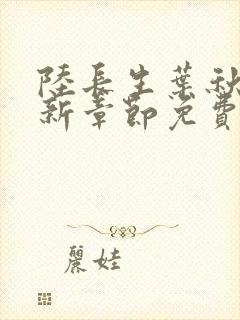 陸長生葉秋
新章節免費
麗娃